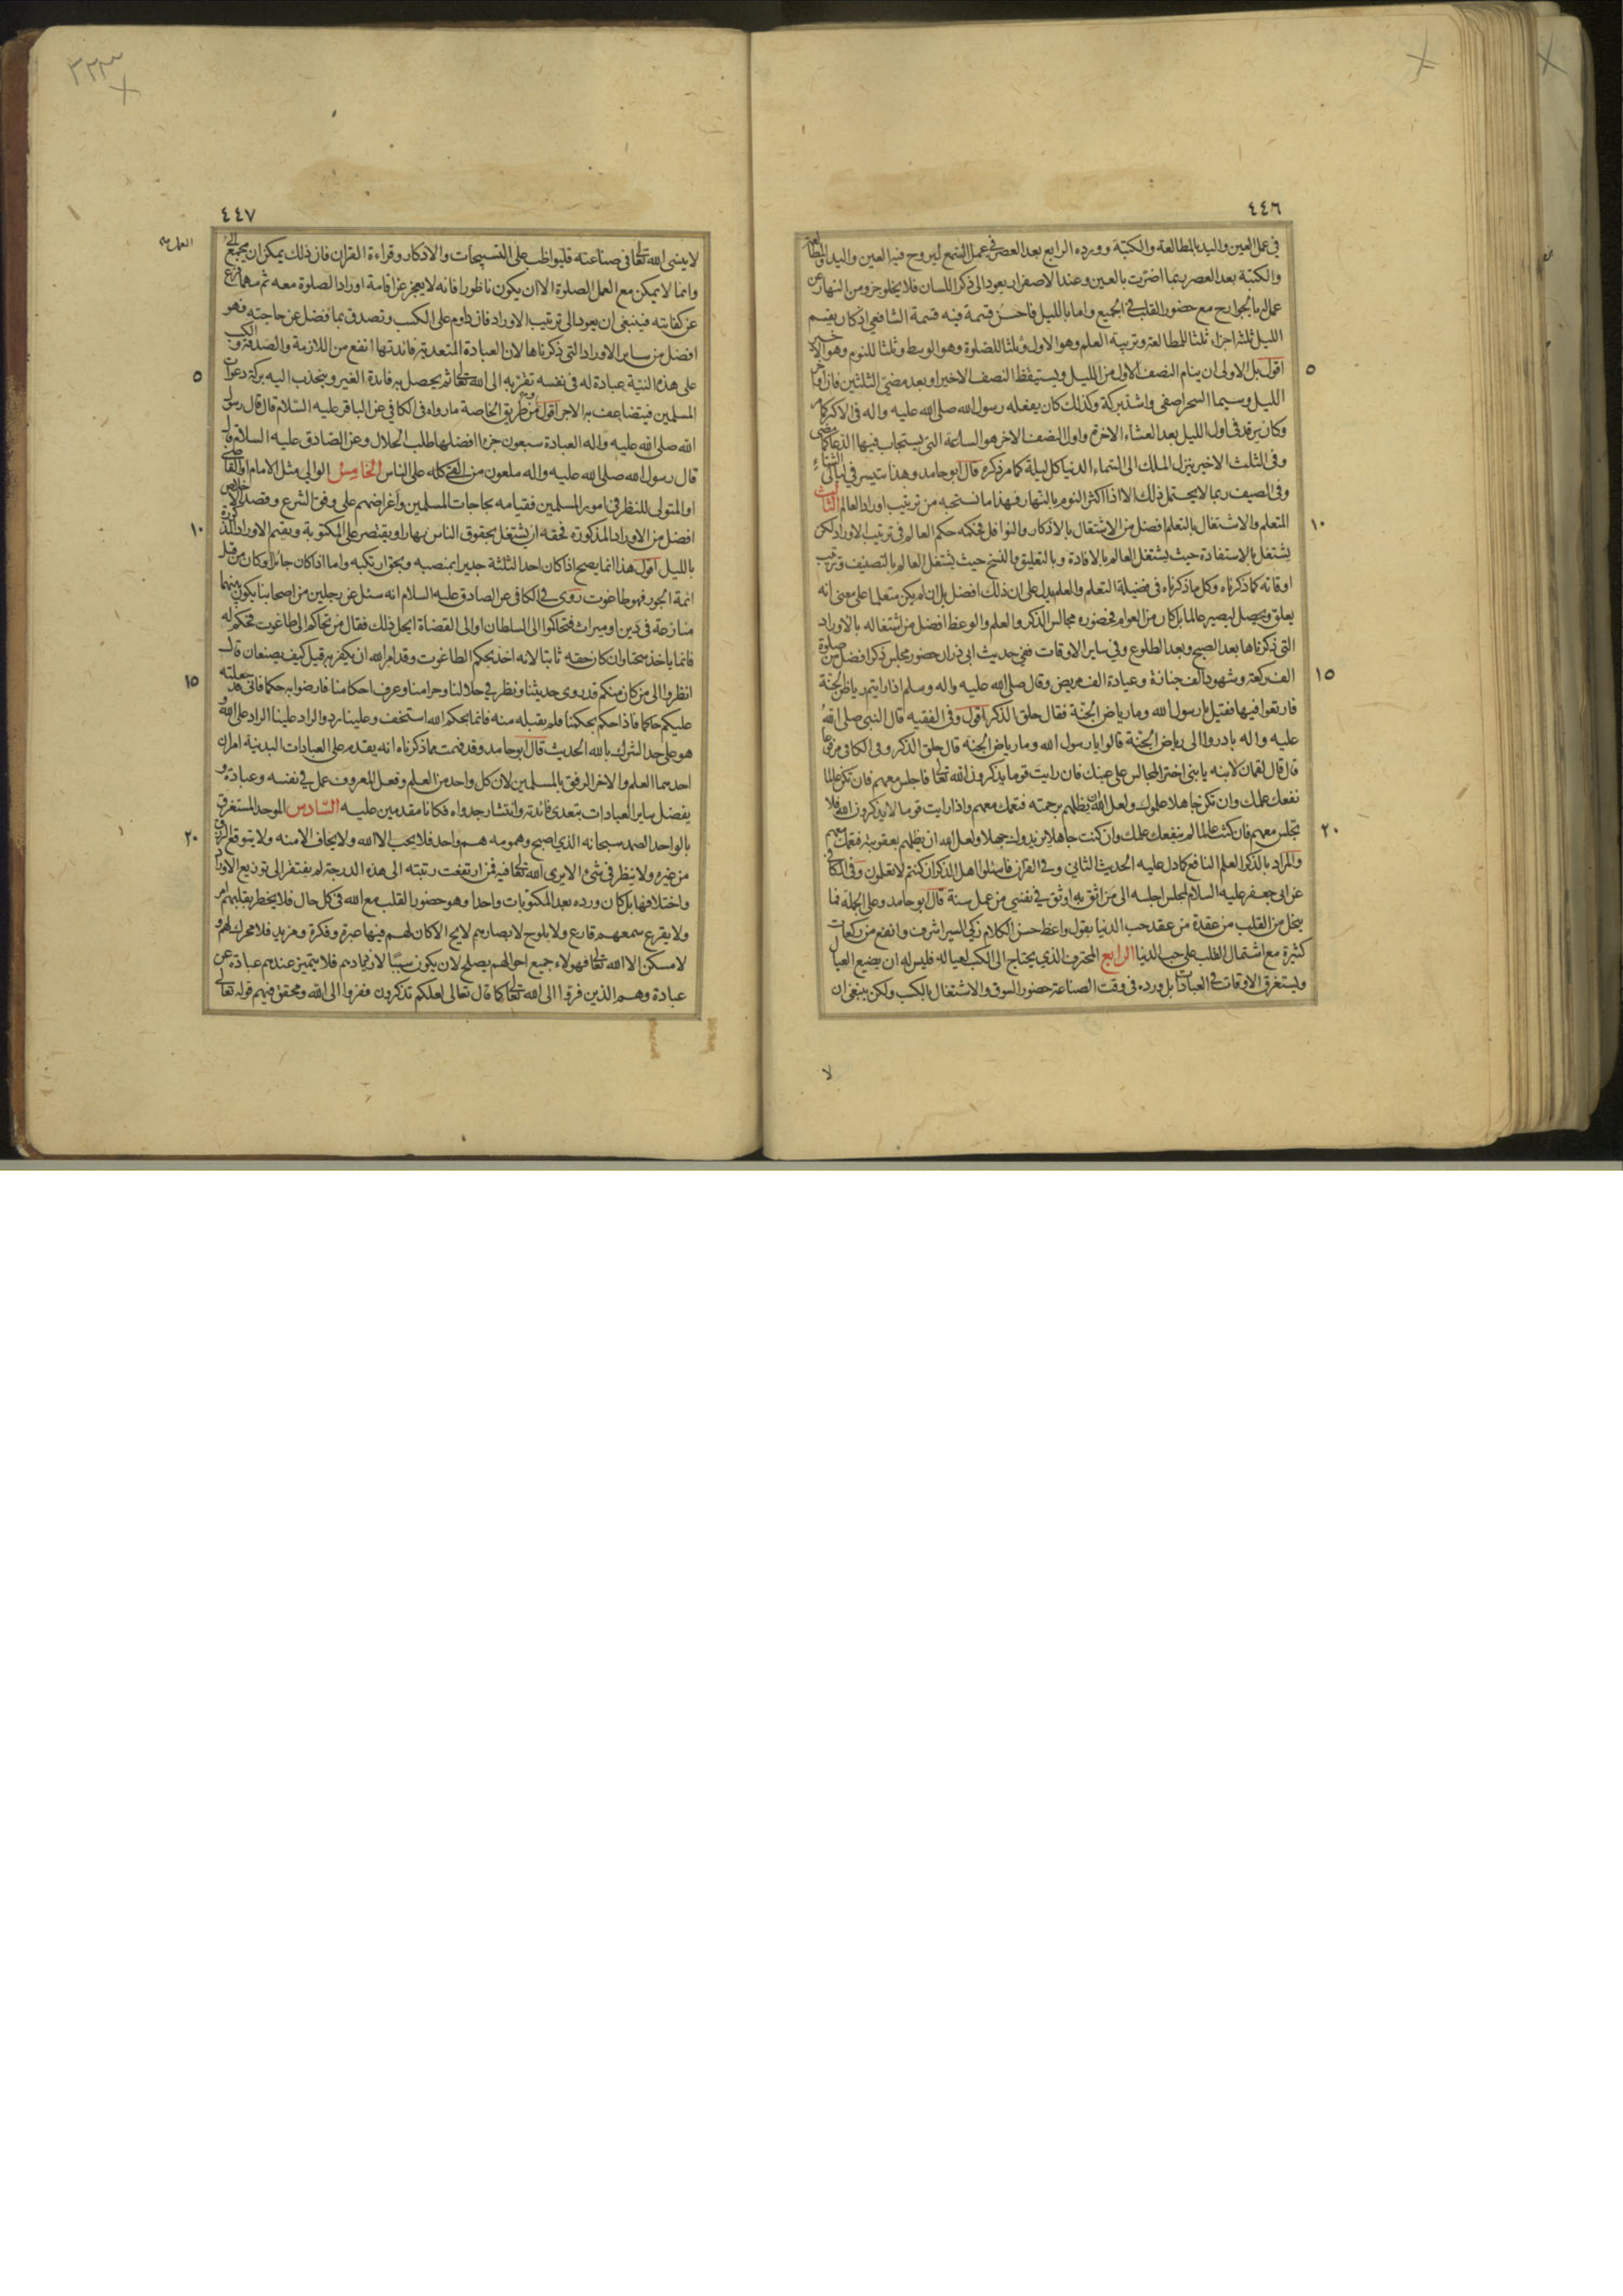 ٤٤٦
في عمل العين واليد بالمطالعة والكتبة وورده الرابع بعد العصر في عمل السمع ليروح فيه العين واليد والمطالعة
والكتبة بعد العصر ربما اضرت بالعين وعند الاصفرار يعود الى ذكر اللسان فلا يخلو جزو من النهار عن
عمل بالجوارح مع حضور القلب في الجميع واما بالليل فاحسن قسمة فيه قسمة الشافعي اذ كان يقسم
الليل ثلثة اجزاء ثلثا للمطالعة وترتيب العلم وهو الاول وثلثا للصلوة وهو الوسط وثلثا للنوم وهو الاخير
٥
اقول بل الاولى ان ينام النصف الاول من الليل ويستيقظ النصف الاخير او بعد مضي الثلثين فان اخر
الليل وسيما السحر اصفى واشد بركة وكذلك كان يفعله رسول الله صلى الله عليه واله في الاكثر كما مر
وكان يرقد في اول الليل بعد العشاء الاخرة واول النصف الاخر هو الساعة التي يستجاب فيها الدعا كما مضى
وفى الثلث الاخير ينزل الملك الى السماء الدنيا كل ليلة كما مر ذكره قال ابو حامد وهذا يتيسر في ليالى الشتاء
وفى الصيف ربما لا يحتمل ذلك الا اذا اكثر النوم بالنهار فهذا ما نستحبه من ترتيب اوراد العالم الثالث
١٠
المتعلم والاشتغال بالتعلم افضل من الاشتغال بالاذكار والنوافل فحكمه حكم العالم في ترتيب الاوراد لكن
يشتغل بالاستفادة حيث يشتغل العالم بالافادة وبالتعليق والنسخ حيث يشتغل العالم بالتصنيف وترتيب
اوقاته كما ذكرناه وكل ما ذكرناه في فضيلة التعلم والعلم يدل على ان ذلك افضل بل ان لم يكن متعلما على معنى انه
يعلق ويحصل ليصير عالما بل كان من العوام فحضوره مجالس الذكر والعلم والوعظ افضل من اشتغاله بالاوراد
التى ذكرناها بعد الصبح وبعد الطلوع وفي ساير الاوقات ففي حديث ابى ذر ان حضور مجلس ذكر افضل من صلوة
١٥
الف ركعة وشهود الف جنازة وعيادة الف مريض وقال صلى الله عليه واله وسلم اذا رايتم رياض الجنة
فارتعوا فيها فقيل يا رسول الله وما رياض الجنة فقال حلق الذكر اقول وفى الفقيه قال النبى صلى الله
عليه واله بادروا الى رياض الجنة قالوا يا رسول الله وما رياض الجنة قال حلق الذكر وفى الكافى مرفوعا
قال قال لقمان لابنه يا بنى اختر المجالس على عينك فان رايت قوما يذكرون الله تعالى فاجلس معهم فان تكن عالما
نفعك علمك وان تكن جاهلا علموك ولعل الله ان يظلهم برحمته فتعمك معهم واذا رايت قوما لا يذكرون الله فلا
٢٠
تجلس معهم فان كنت عالما لم ينفعك علمك وان كنت جاهلا يزيدوك جهلا ولعل الله ان يظلهم بعقوبة فتعمك معهم
والمراد بالذكر العلم النافع كما دل عليه الحديث الثاني وفي القرآن فاسئلوا اهل الذكر ان كنتم لا تعلمون وفى الكافى
عن ابى جعفر عليه السلام لمجلس اجلسه الى من اثق به اوثق في نفسي من عمل سنة قال ابو حامد وعلى الجملة فما
ينحل من القلب من عقدة من عقد حب الدنيا بقول واعظ حسن الكلام زكي السيرة اشرف وانفع من ركعات
كثيرة مع اشتمال القلب على حب الدنيا الرابع المحترف الذي يحتاج الى الكسب لعياله فليس له ان يضيع العيال
ويستغرق الاوقات في العبادات بل ورده فى وقت الصناعة حضور السوق والاشتغال بالكسب ولكن ينبغى ان
لا
٣٢٣
٤٤٧
لا ينسى الله تعالى فى صناعته فليواظب على التسبيحات والاذكار وقراءة القران فان ذلك يمكن ان يجمع الى العمل
وانما لا يمكن مع العمل الصلوة الا ان يكون ناظورا فانه لا يعجز عن اقامة اوراد الصلوة معه ثم مهما فرغ
عن كفايته فينبغى ان يعود الى ترتيب الاوراد فان داوم على الكسب وتصدق بما فضل عن حاجته فهو
افضل من ساير الاوراد التى ذكرناها لان العبادة المتعدية فائدتها انفع من اللازمة والصدقة والكسب
٥
على هذه النية عبادة له فى نفسه تقربه الى الله تعالى ثم يحصل به فائدة الغير وينجذب اليه بركة دعوات
المسلمين فيتضاعف به الاجر اقول ومن طريق الخاصة ما رواه فى الكافي عن الباقر عليه السلام قال قال رسول
الله صلى الله عليه واله العبادة سبعون جزءا افضلها طلب الحلال وعن الصادق عليه السلام قال
قال رسول الله صلى الله عليه واله ملعون من القى كله على الناس الخامس الوالي مثل الامام او القاضى
او المتولى للنظر في امور المسلمين فقيامه بحاجات المسلمين واغراضهم على وفق الشرع وقصد الاخلاص
١٠
افضل من الاوراد المذكورة فحقه ان يشتغل بحقوق الناس نهارا ويقتصر على المكتوبة ويقيم الاوراد المذكورة
بالليل اقول هذا انما يصح اذا كان احد الثلثة جديرا بمنصبه وبحق ارتكبه واما اذا كان جائرا وكان من قبل
ائمة الجور فهو طاغوت روى في الكافى عن الصادق عليه السلام انه سئل عن رجلين من اصحابنا يكون بينهما
منازعة فى دين او ميراث فتحاكموا الى السلطان او الى القضاة ايحل ذلك فقال من تحاكم الى طاغوت فحكم له
فانما ياخذ سحتا وان كان حقه ثابتا لانه اخذ بحكم الطاغوت وقد امر الله ان يكفر به قيل كيف يصنعان قال
١٥
انظروا الى من كان منكم قد روى حديثنا ونظر في حلالنا وحرامنا وعرف احكامنا فارضوا به حكما فانى قد جعلته
عليكم حاكما فاذا حكم بحكمنا فلم يقبله منه فانما بحكم الله استخف وعلينا رد والراد علينا الراد على الله و
هو على حد الشرك بالله الحديث قال ابو حامد وقد فهمت مما ذكرناه انه يقدم على العبادات البدنية امران
احدهما العلم والاخر الرفق بالمسلمين لان كل واحد من العلم وفعل المعروف عمل في نفسه وعبادة و
يفضل ساير العبادات بتعدى فائدته وانتشار جدواه فكانا مقدمين عليه السادس الموحد المستغرق
٢٠
بالواحد الصمد سبحانه الذي اصبح وهمومه هم واحد فلا يحب الا الله ولا يخاف الا منه ولا يتوقع الرزق
من غيره ولا ينظر فى شئ الا يرى الله تعالى فيه فمن ارتفعت رتبته الى هذه الدرجة لم يفتقر الى توزيع الاوراد
واختلافها بل كان ورده بعد المكتوبات واحدا وهو حضور القلب مع الله فى كل حال فلا يخطر بقلبهم امر
ولا يقرع سمعهم قارع ولا يلوح لابصارهم لايح الا كان لهم فيها عبرة وفكرة ومزيد فلا محرك لهم و
لا مسكن الا الله تعالى فهولاء جميع احوالهم يصلح لان يكون سببا لازديادهم فلا يتميز عندهم عبادة عن
عبادة وهم الذين فروا الى الله تعالى كما قال تعالى لعلكم تذكرون ففروا الى الله وتحقق فيهم قوله تعالى